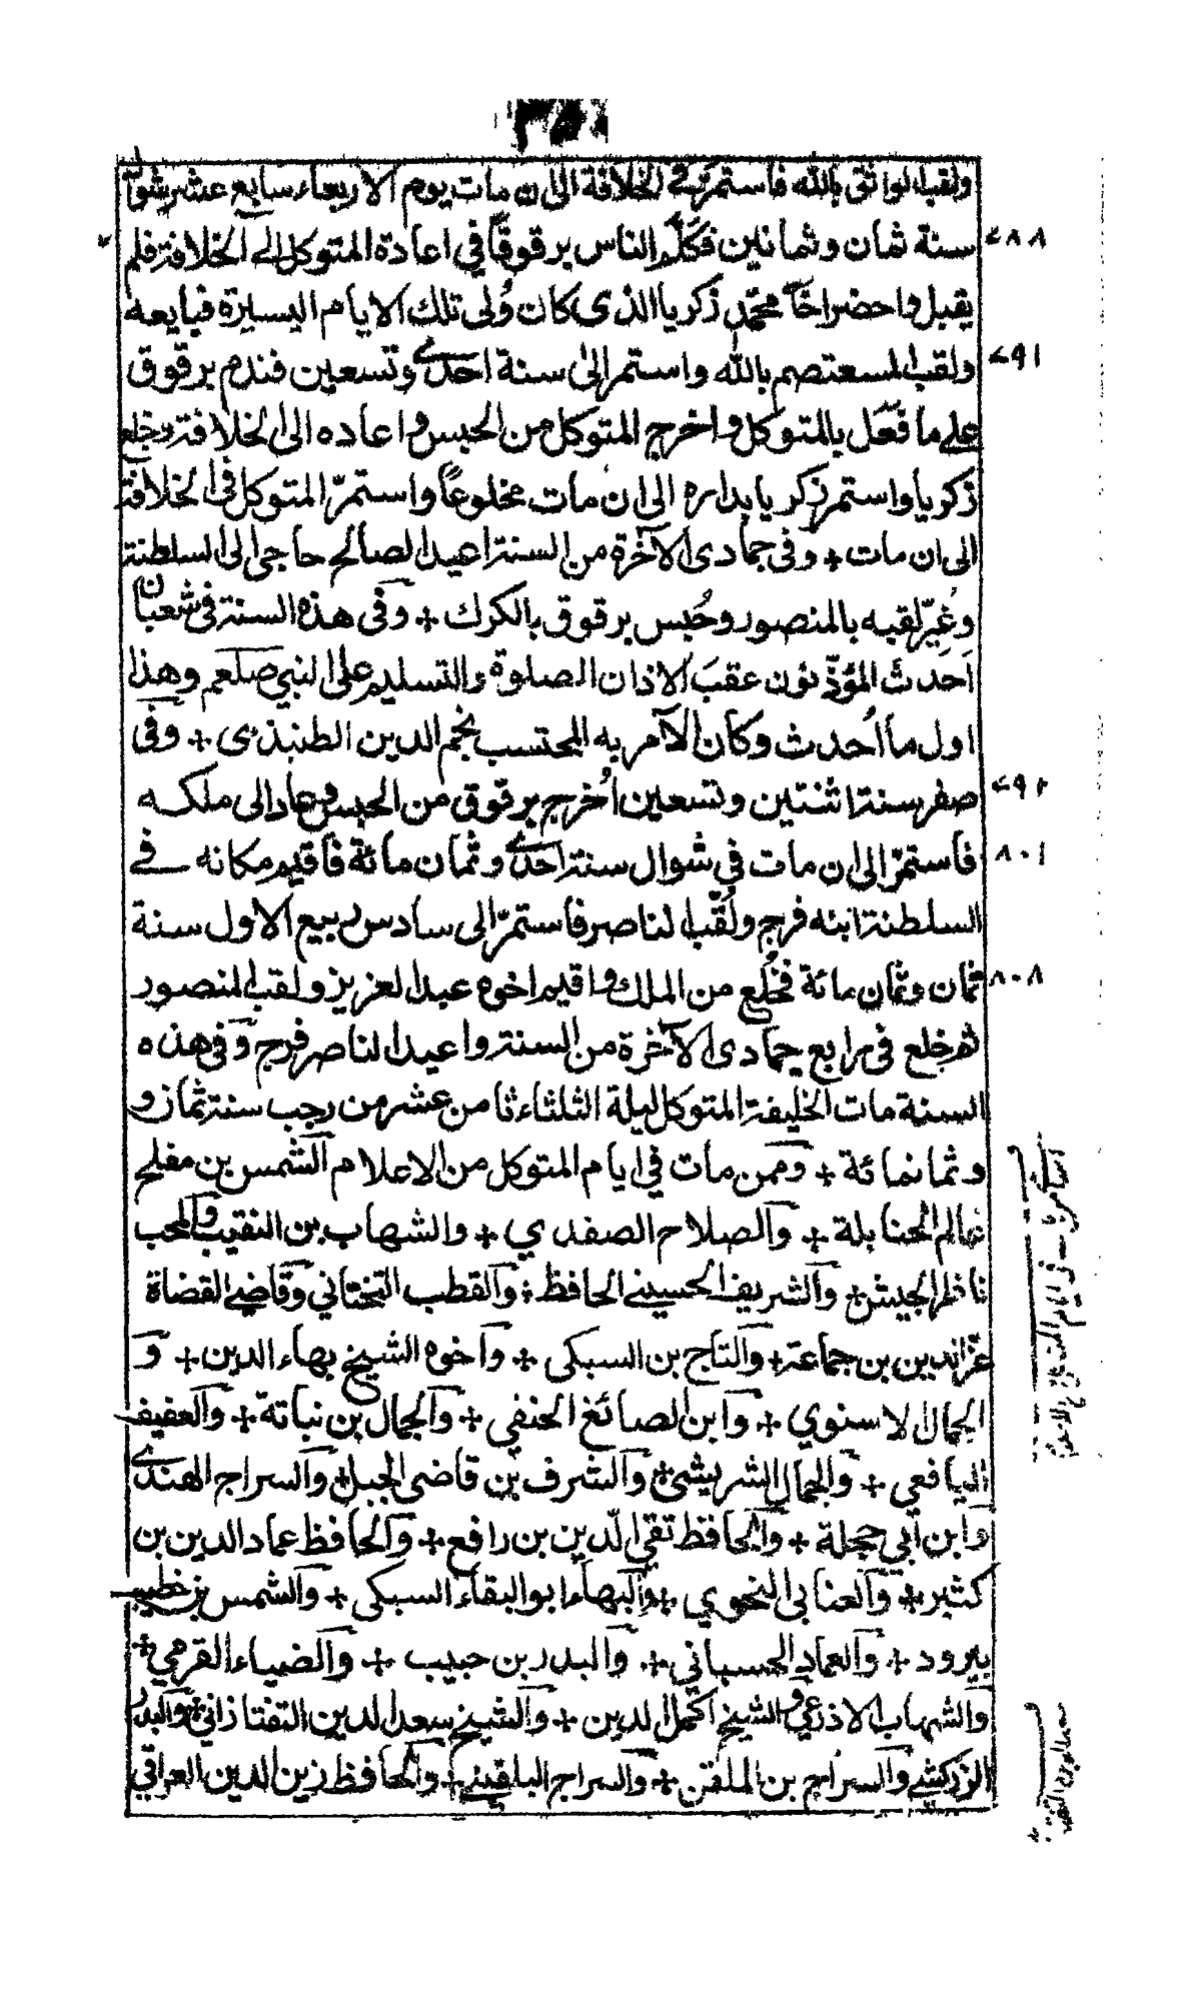 ولقب الواثق بالله فاستمرّ في الخلافة الى ان مات يوم الاربعاء سابع عشر شوال
سنة ثمان وثمانين فكلّم الناس برقوقاً في اعادة المتوكل الى الخلافة فلم
٧٨٨
يقبل واحضر اخا محمد زكريا الذى كان وُلى تلك الايام اليسيرة فبايعه
ولقب المستعصم بالله واستمر الى سنة احدى وتسعين فندم برقوق
٧٩١
على ما فعل بالمتوكل واخرج المتوكل من الحبس واعاده الى الخلافة وخلع
زكريا واستمر زكريا بداره الى ان مات مخلوعاً واستمرّ المتوكل فى الخلافة
الى ان مات + وفى جمادى الآخرة من السنة اعيد الصالح حاجى الى السلطنة
وغُيّر لقبه بالمنصور وحُبس برقوق بالكرك + وفى هذه السنة فى شعبان
احدث المؤذّنون عقب الاذان الصلوة والتسليم على النبي صلعم وهذا
اول ما اُحدث وكان الآمر به المحتسب نجم الدين الطنبذى + وفى
صفر سنة اثنتين وتسعين اُخرج برقوق من الحبس وعاد الى ملكه
٧٩٢
فاستمرّ الى ان مات في شوال سنة احدى وثمان مائة فاقيم مكانه في
٨٠١
السلطنة ابنه فرج ولُقّب الناصر فاستمرّ الى سادس ربيع الاول سنة
ثمان وثمان مائة فخُلع من الملك واقيم اخوه عبد العزيز ولقب المنصور
٨٠٨
ثم خلع فى رابع جمادى الآخرة من السنة واعيد الناصر فرج وفى هذه
السنة مات الخليفة المتوكل ليلة الثلثاء ثامن عشر من رجب سنة ثمان و
وثمانمائة + وممن مات في ايام المتوكل من الاعلام الشمس بن مفلح
عالم الحنابلة + والصلاح الصفدي + والشهاب بن النقيب والمحب
ناظر الجيش + والشريف الحسيني الحافظ + والقطب التحتاني وقاضي القضاة
عزّ الدين بن جماعة + والتاج بن السبكى + واخوه الشيخ بهاء الدين + و
الجمال الاسنوي + وابن الصائغ الحنفي + والجمال بن نباتة + والعفيف
اليافعي + والجمال الشريشي + والشرف بن قاضى الجبل + والسراج الهندى
وابن ابي حجلة + والحافظ تقي الدّين بن رافع + والحافظ عماد الدين بن
كثير + والعنابى النحوي + والبهاء ابو البقاء السبكى + والشمس بن خطيب
يبرود + والعماد الحسبانى + والبدر بن حبيب + والضياء القرمي +
والشهاب الاذرعي والشيخ اكمل الدين + والشيخ سعد الدين التفتازاني + والبدر
الزركشي والسراج بن الملقن + والسراج البلقيني + والحافظ زين الدين العراقي